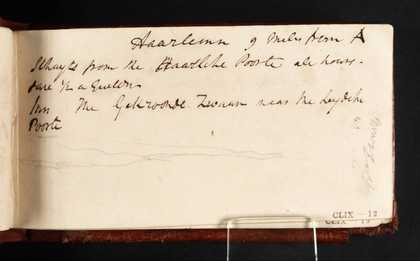 Haarlemm 9 Miles from A
Schuyts from the Haarlehe Poorte all hours.
fare ½ a Guelder
Inn The Gekroonde Zwaan near the Leydche
Poorte
CLIX - 12
CLIX - 12